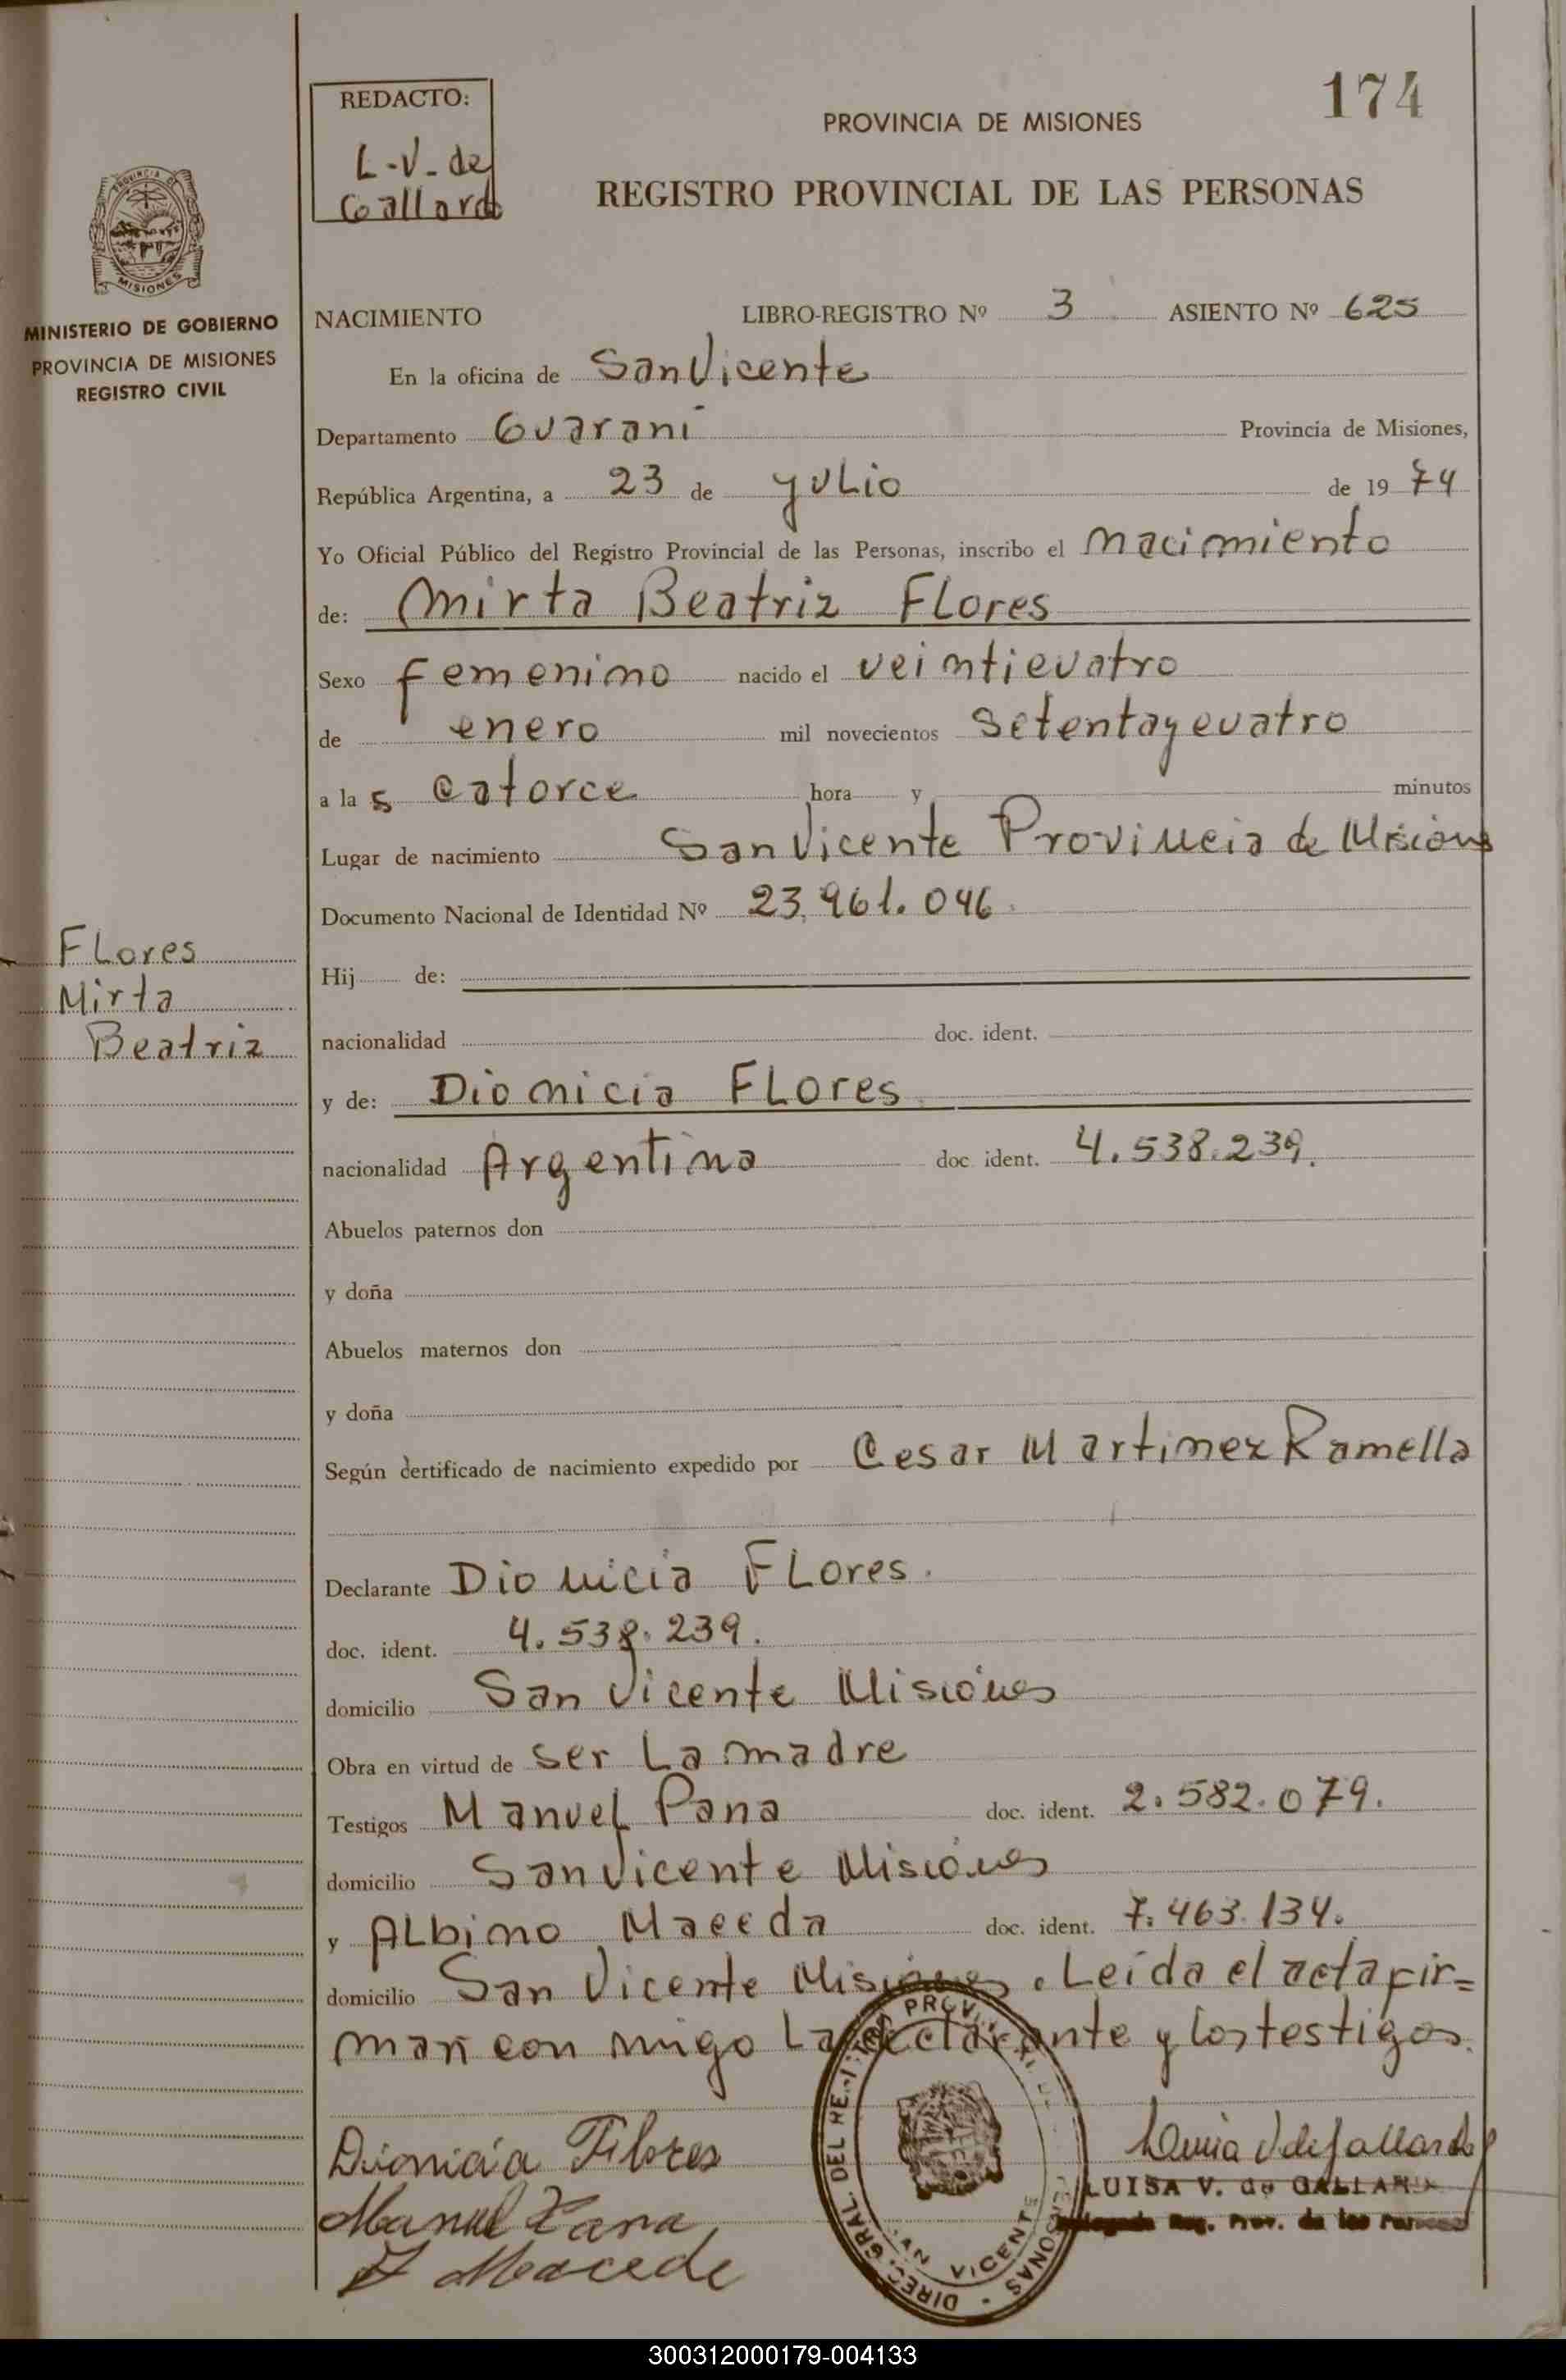 174
REDACTO:
L-V- de
Gallardo
PROVINCIA DE MISIONES
REGISTRO PROVINCIAL DE LAS PERSONAS
PROVINCIA DE
MISIONES
MINISTERIO DE GOBIERNO
PROVINCIA DE MISIONES
REGISTRO CIVIL
NACIMIENTO LIBRO-REGISTRO Nº 3 ASIENTO Nº 625
En la oficina de San Vicente
Departamento Guaraní Provincia de Misiones,
República Argentina, a 23 de yulio de 1974
Yo Oficial Público del Registro Provincial de las Personas, inscribo el nacimiento
de: Mirta Beatriz Flores
Sexo femenino nacido el veinticuatro
de enero mil novecientos setentaycuatro
a las catorce hora y minutos
Lugar de nacimiento San Vicente Provincia de Misiones
Documento Nacional de Identidad Nº 23.961.046
Flores
Mirta
Beatriz
Hij de:
nacionalidad doc. ident.
y de: Dionicia Flores
nacionalidad Argentina doc. ident. 4.538.239.
Abuelos paternos don
y doña
Abuelos maternos don
y doña
Según certificado de nacimiento expedido por Cesar Martinez Ramella
Declarante Dionicia Flores.
doc. ident. 4.538.239.
domicilio San Vicente Misiones
Obra en virtud de ser La madre
Testigos Manuel Pana doc. ident. 2.582.079.
domicilio San Vicente Misiones
y Albino Maceda doc. ident. 7.463.134.
domicilio San Vicente Misiones. Leída el acta fir=
man con migo La declarante y los testigos.
Dionicia Flores
Manuel Pana
Macede
Luisa V de Gallardo
LUISA V. de GALLARDO
Delegada Reg. Prov. de las Personas
DIREC. GRAL. DEL REGISTRO PROVINCIAL DE LAS PERSONAS
SAN VICENTE
300312000179-004133